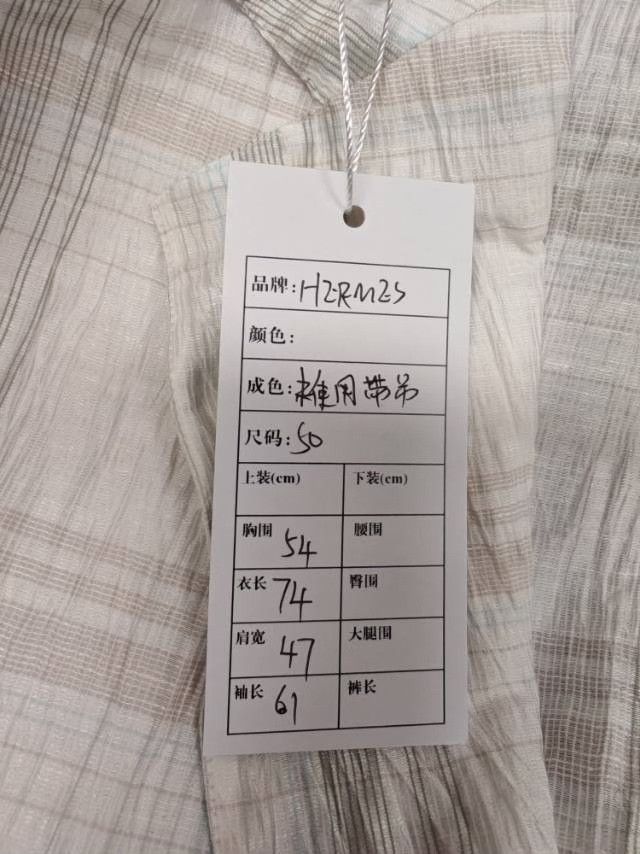 品牌: HERMES
颜色:
成色: 未使用带吊
尺码: 50
上装(cm) 下装(cm)
胸围 54 腰围
衣长 74 臀围
肩宽 47 大腿围
袖长 61 裤长